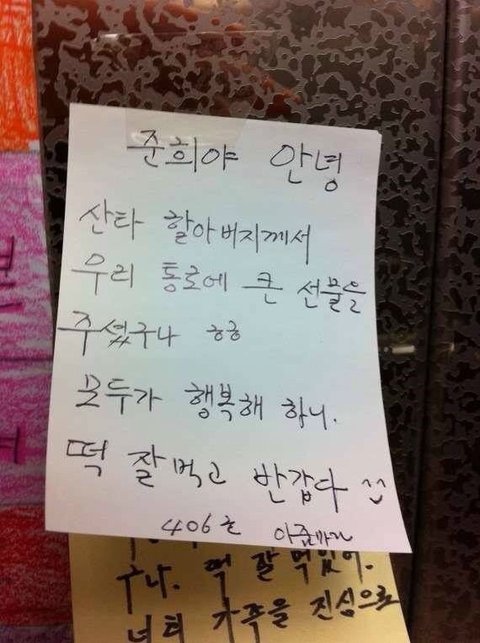 준희야 안녕
산타 할아버지께서
우리 통로에 큰 선물을
주셨구나 ㅎㅎ
모두가 행복해 하니.
떡 잘먹고 반갑다 ^^
406호 아줌마가
구나. 떡 잘 먹었어.
너희 가족을 진심으로